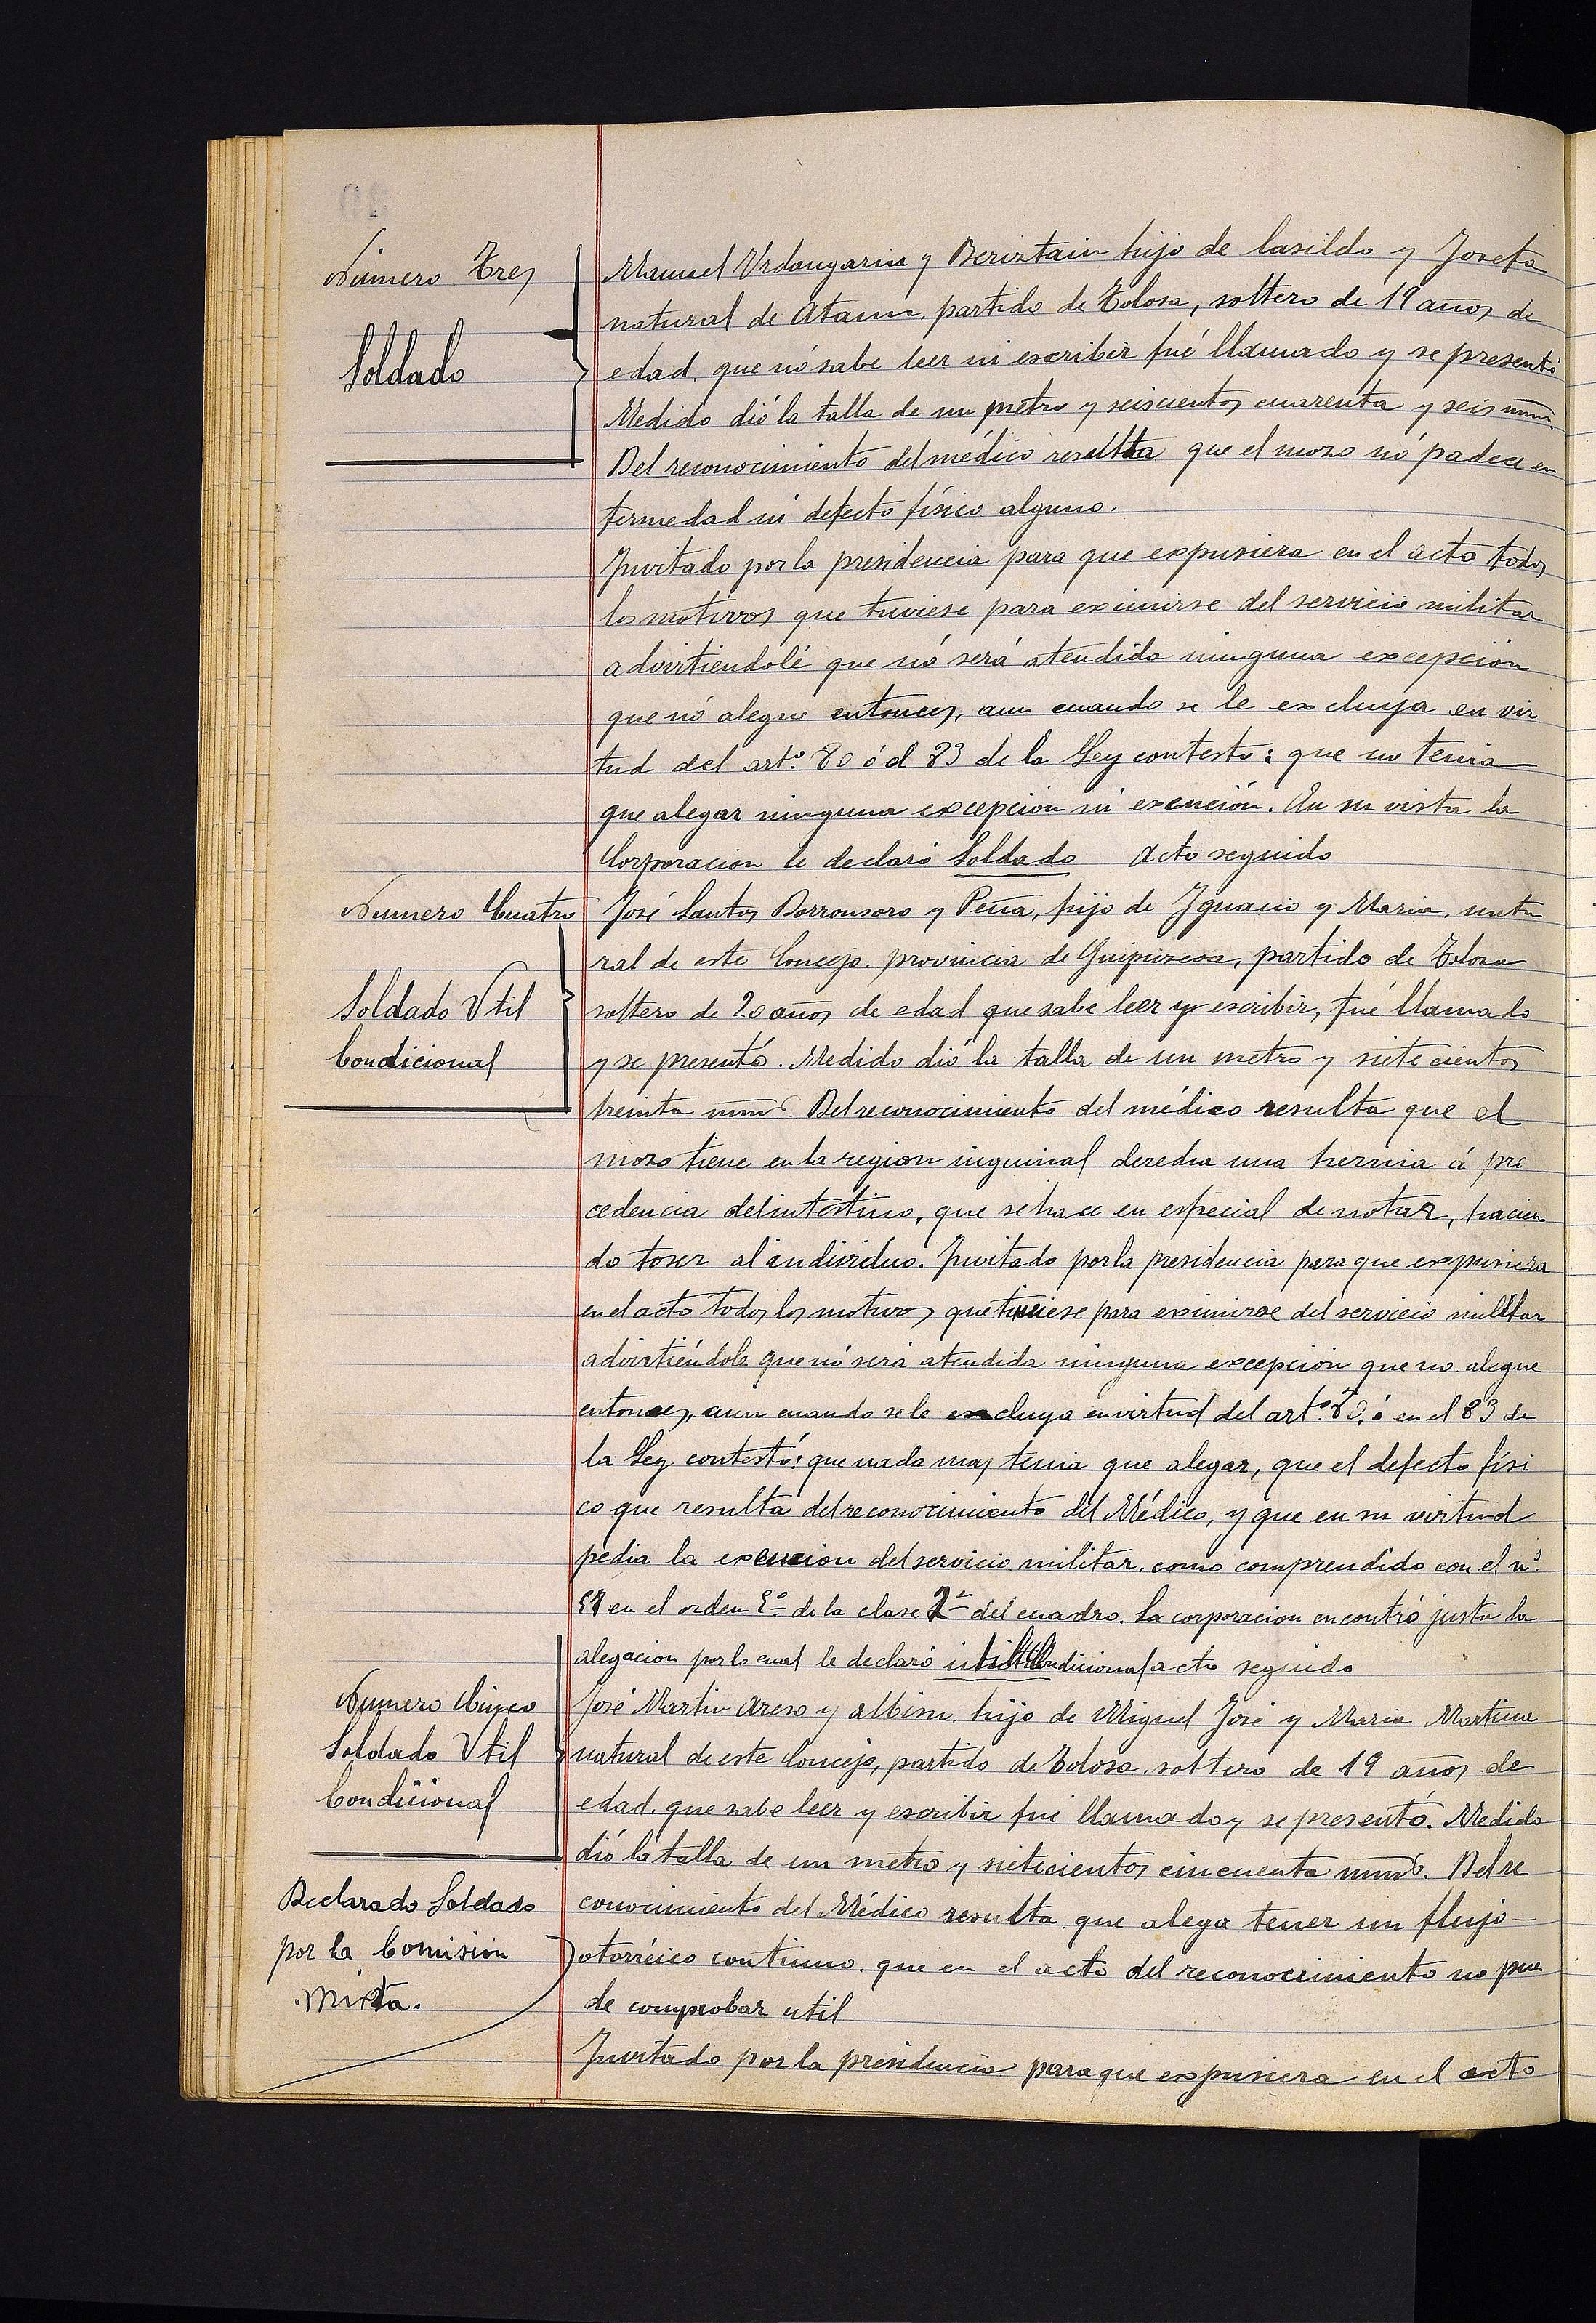 Número Tres
Soldado
Manuel Urdangarin y Beriztain hijo de Casildo y Josefa
natural de Ataun, partido de Tolosa, soltero de 19 años de
edad, que nó sabe leer ni escribir fué llamado y se presentó
Medido dió la talla de un metro y seiscientos cuarenta y seis mm.
Del reconocimiento del médico resulta que el mozo nó padece en
fermedad ni defecto físico alguno.
Invitado por la presidencia para que expusiera en el acto todos
los motivos que tuviese para eximirse del servicio militar
advirtiendolé que nó será atendida ninguna excepción
que nó alegue entonces, aun cuando se le excluya en vir
tud del artº 80 ó el 83 de la Ley contestó: que no tenia
que alegar ninguna excepcion ni exención. En su vista la
Corporacion le declaró Soldado Acto seguido
Numero Cuatro
Soldado Util
Condicional
José Santos Dorronsoro y Peña, hijo de Ignacio y Maria, natu
ral de este Concejo, provincia de Guipúzcoa, partido de Tolosa
soltero de 20 años de edad que sabe leer y escribir, fué llamado
y se presentó. Medido dió la talla de un metro y sietecientos
treinta mm. Del reconocimiento del médico resulta que el
mozo tiene en la region inguinal derecha una hernia á pro
cedencia del intestino, que se hace en especial de notar, hacien
do toser al individuo. Invitado por la presidencia para que expusiera
en el acto todos los motivos que tuviese para eximirse del servicio militar
advirtiéndole que nó será atendida ninguna excepción que no alegue
entonces, aun cuando se le excluya en virtud del artº 80, ó en el 83 de
la Ley contestó: que nada mas tenia que alegar, que el defecto físi
co que resulta del reconocimiento del Médico, y que en su virtud
pedia la exencion del servicio militar, como comprendido con el nº
en el orden de la clase 2ª del cuadro. La corporacion encontró justa la
alegacion por lo cual le declaró util condicional acto seguido
Numero Cinco
Soldado Util
Condicional
José Martin Areso y Albisu, hijo de Miguel José y Maria Martina
natural de este Concejo, partido de Tolosa, soltero de 19 años de
edad, que sabe leer y escribir fué llamado y se presentó. Medido
dió la talla de un metro y sietecientos cincuenta mm. Del re
conocimiento del Médico resulta que alega tener un flujo
otorréico continuo, que en el acto del reconocimiento no pue
de comprobar util
Invitado por la presidencia para que expusiera en el acto
Declarado Soldado
por la Comisión
Mixta.